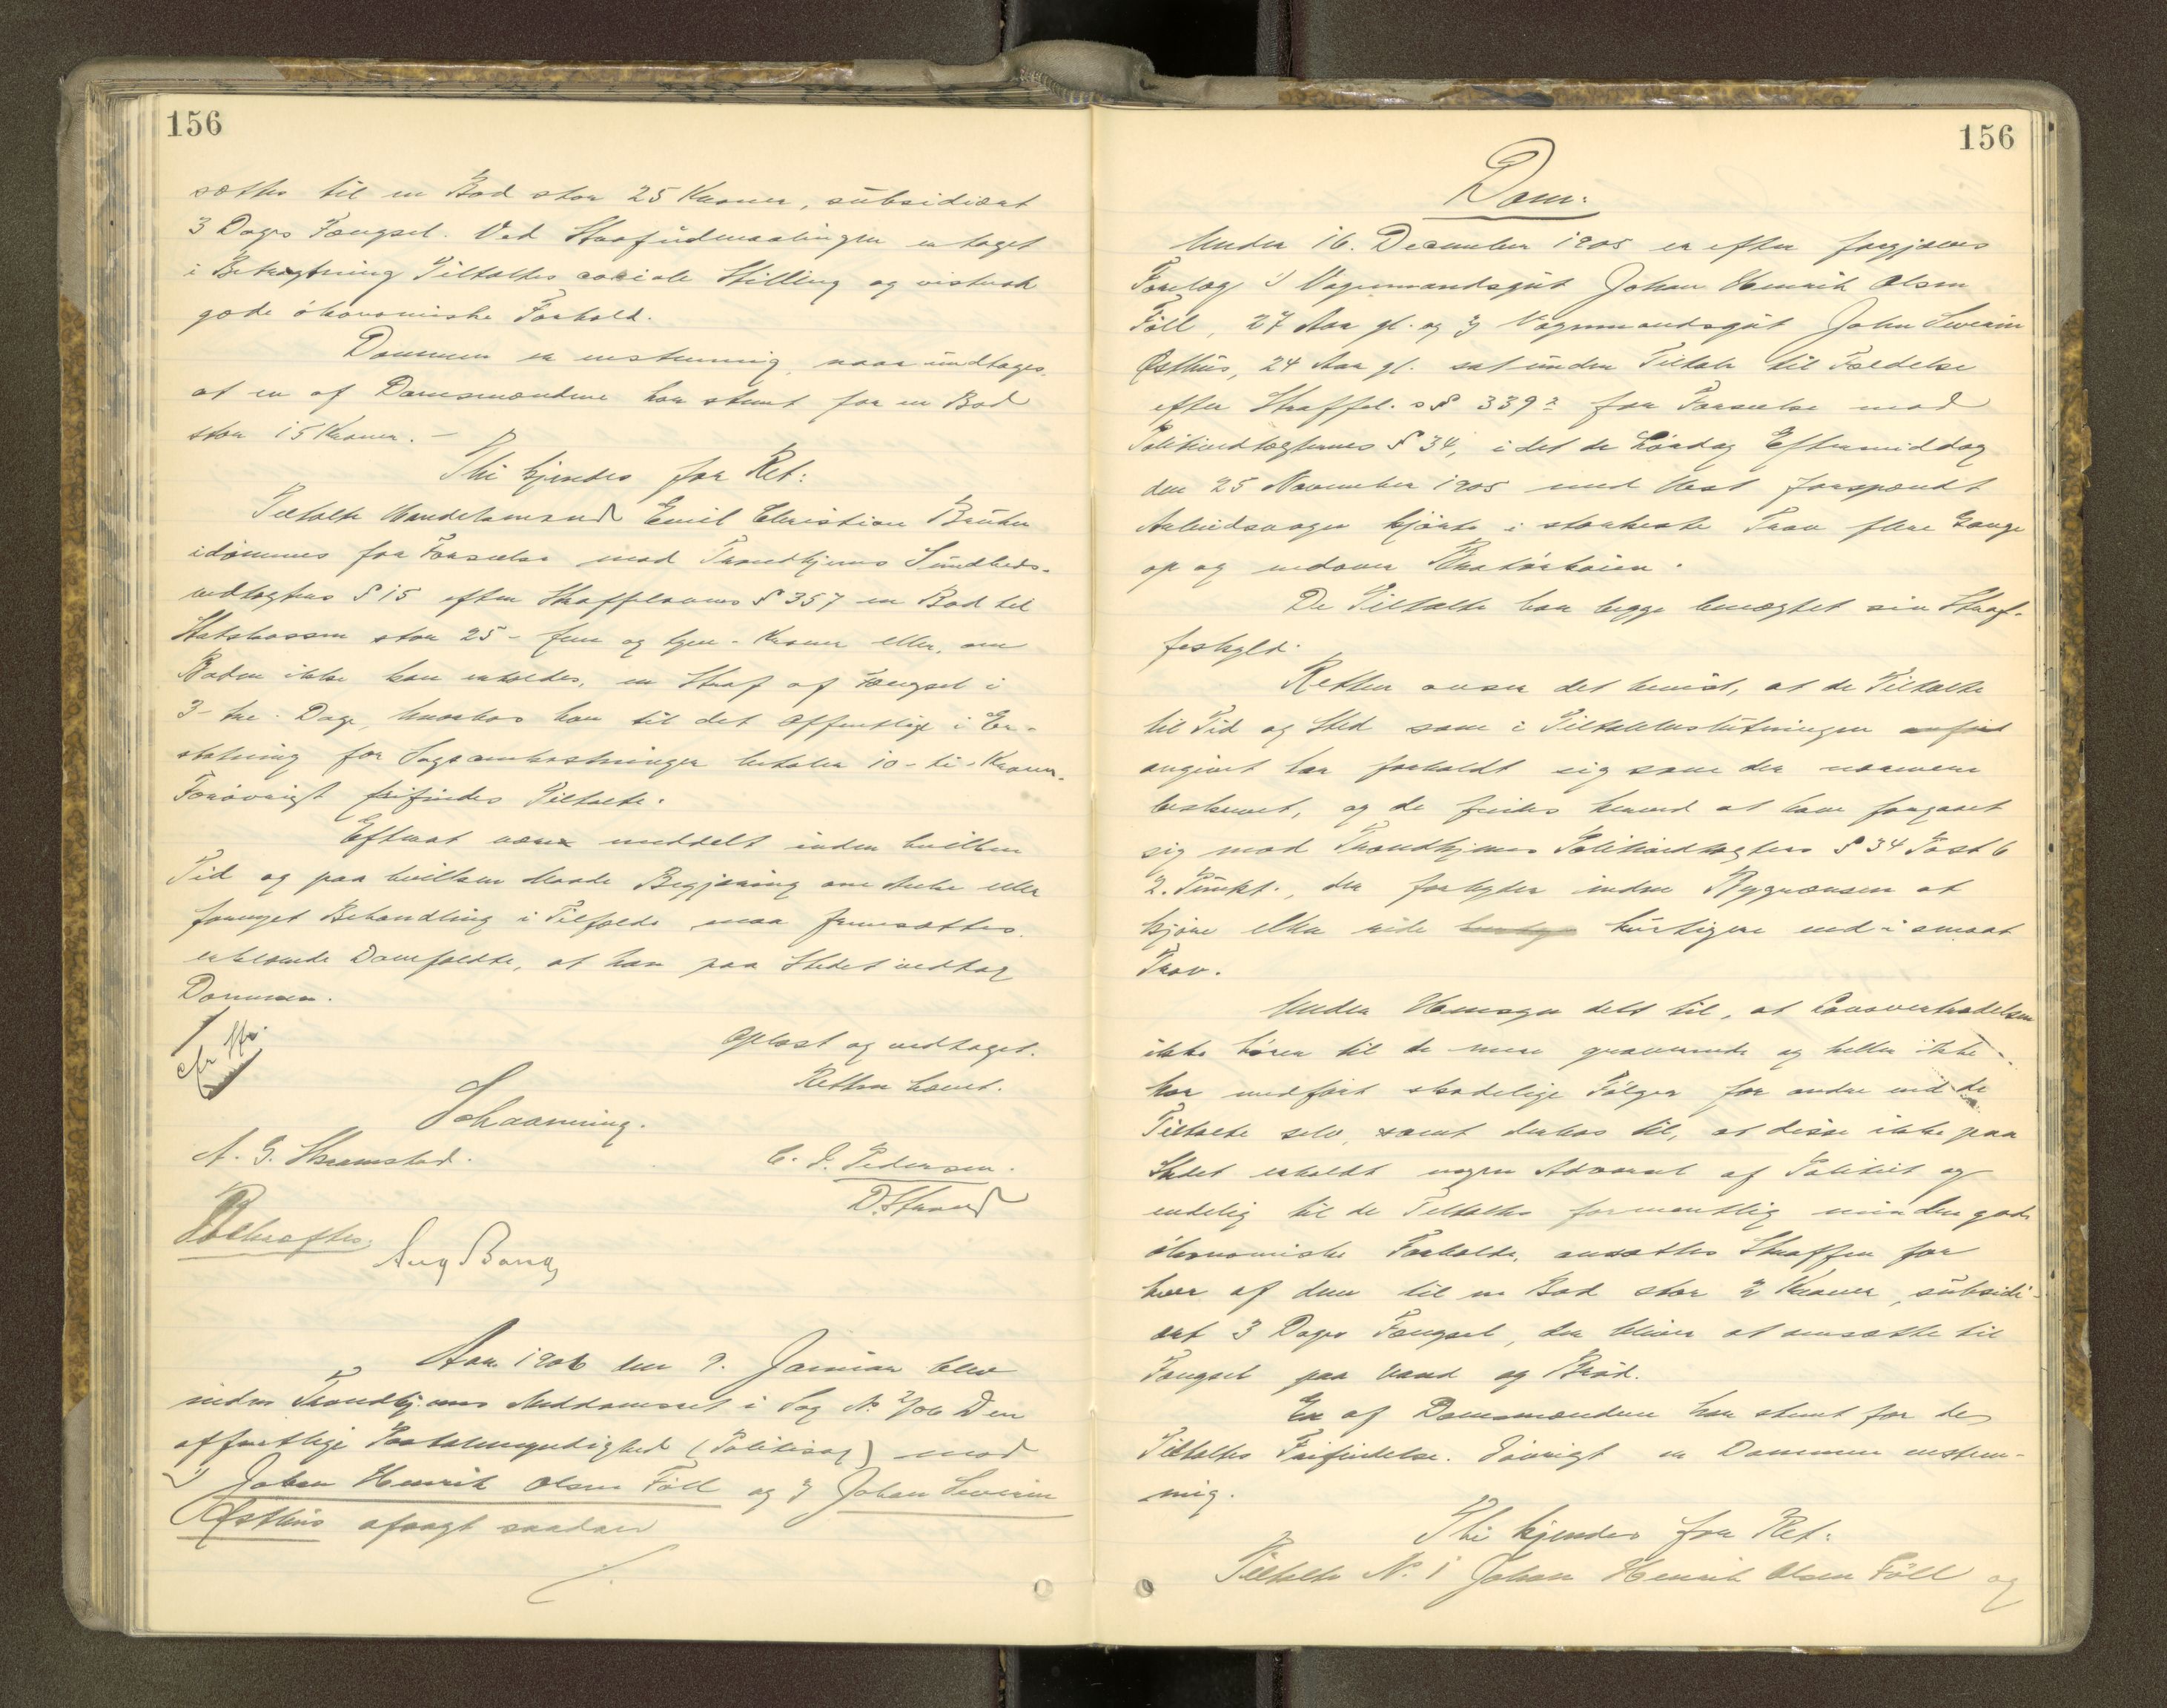 156
sættes til en Bod stor 25 Kroner, subsidiært
3 Dages Fængsel. Ved Straffudmaalingen er taget
i Betragtning Tiltaltes sociale Stilling og vistnok
gode økonomiske Forhold.
Dommen er enstemmig, naar undtages,
at en af Domsmændene har stemt for en Bod
stor 15 Kroner. –
Thi kjendes for Ret:
Tiltalte Handelsmand Emil Christian
idømmes for Forseelse mod Trondhjems Sundheds-
vedtægters § 15 efter Straffelovens § 357 en Bod til
Statskassen stor 25 - fem og tyve - Kroner eller, om
Boden ikke kan erholdes, en Straf af Fængsel i
3 - tre - Dage, hvorhos han til det Offentlige i Er-
statning for Sagsomkostninger betaler 10 - ti - Kroner.
Forøvrigt frifindes Tiltalte.
Efterat være meddelt inden hvilken
Tid og paa hvilken Maade Begjæring om Anke eller
fornyet Behandling i Tilfælde maa fremsættes,
erklærede Domfældte, at han paa Stedet vedtog
Dommen.
Oplæst og vedtaget.
Retten hævet.
Schaanning.
A. G. Skramstad.
C. J. Pedersen.
D. Strand
Bekræftes,
Aug Bang
Aar 1906 den 9. Januar blev
inden Trondhjems Meddomsret i Sag No 2/06 Den
offentlige Paatalemyndighed (Politisag) mod
1) Johan Henrik Olsen Föll og 2) Johan Severin
Østhus afsagt saadan
156
Dom:
Under 16. December 1905 er efter forgjæves
Forelæg 1) Vognmandsgut Johan Henrik Olsen
Föll, 27 Aar gl. og 2) Vognmandsgut John Severin
Østhus, 24 Aar gl. sat under Tiltale til Fældelse
efter Straffel.s § 339 2 for Forseelse mod
Politivedtægternes § 34, i det de Lørdag Eftermiddag
den 25 November 1905 med Hest forspændt
Arbeidsvogn kjørte i stærkeste Trav flere Gange
op og nedover Bratørkaien.
De Tiltalte har begge benægtet sin Straf-
feskyld.
Retten anser det bevist, at de Tiltalte
til Tid og Sted som i Tiltalebeslutningen anført
angivet har forholdt sig som der nærmere
beskrevet, og de findes herved at have forgaaet
sig mod Trondhjems Politivedtægters § 34 Post 6
2. Punkt., der forbyder inden Bygrænsen at
kjøre eller ride hurtigere end i smaat
Trav.
Under Hensyn dels til, at Lovovertrædelsen
ikke hører til de mere graverende og heller ikke
har medført skadelige Følger for andre end de
Tiltalte selv, samt derhos til, at disse ikke paa
Stedet erholdt nogen Advarsel af Politiet og
endelig til de Tiltaltes formentlig mindre gode
økonomiske Forholde, ansættes Straffen for
hver af dem til en Bod stor 2 Kroner, subsidi-
ært 3 Dages Fængsel, der bliver at omsætte til
Fængsel paa Vand og Brød.
En af Domsmændene har stemt for de
Tiltaltes Frifindelse. Iøvrigt er Dommen enstem-
mig.
Thi kjendes for Ret:
Tiltalte No. 1 Johan Henrik Olsen Föll og